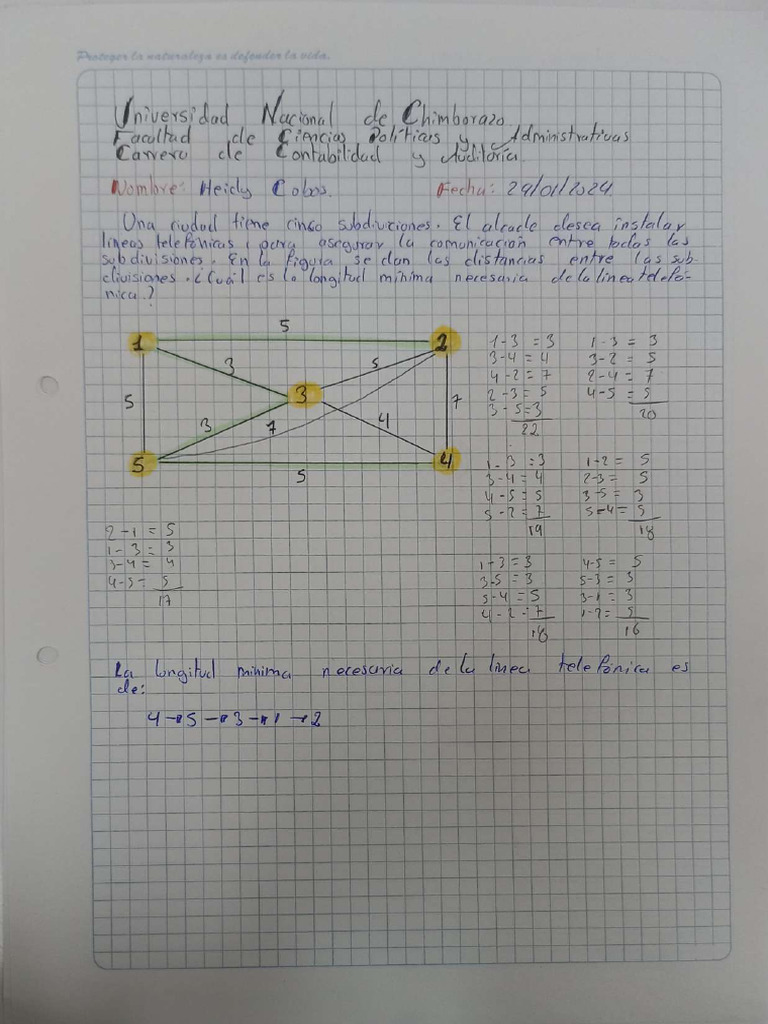 Proteger la naturaleza es defender la vida.
Universidad Nacional de Chimborazo
Facultad de Ciencias Políticas y Administrativas
Carrera de Contabilidad y Auditoria
Nombre: Heidy Cobos. Fecha: 29/01/2024
Una ciudad tiene cinco subdivisiones. El alcade desea instalar
líneas telefónicas, para asegurar la comunicación entre todas las
subdivisiones. En la figura se dan las distancias entre las sub-
divisiones. ¿Cuál es la longitud mínima necesaria de la línea telefó-
nica?
5
1
2
3
5
3
5
3
7
4
7
5
4
5
1-3 = 3
3-4 = 4
4-2 = 7
2-3 = 5
3-5=3
22
1-3 = 3
3-2 = 5
2-4 = 7
4-5 = 5
20
1-3 = 3
3-4 = 4
4-5 = 5
5-2 = 7
19
1-2 = 5
2-3 = 5
3-5 = 3
5-4 = 5
18
2-1 = 5
1-3 = 3
3-4 = 4
4-5 = 5
17
1-3 = 3
3-5 = 3
5-4 = 5
4-2 = 7
18
4-5 = 5
5-3 = 3
3-1 = 3
1-2 = 5
16
La longitud minima necesaria de la linea telefónica es
de:
4→5→3→1→2